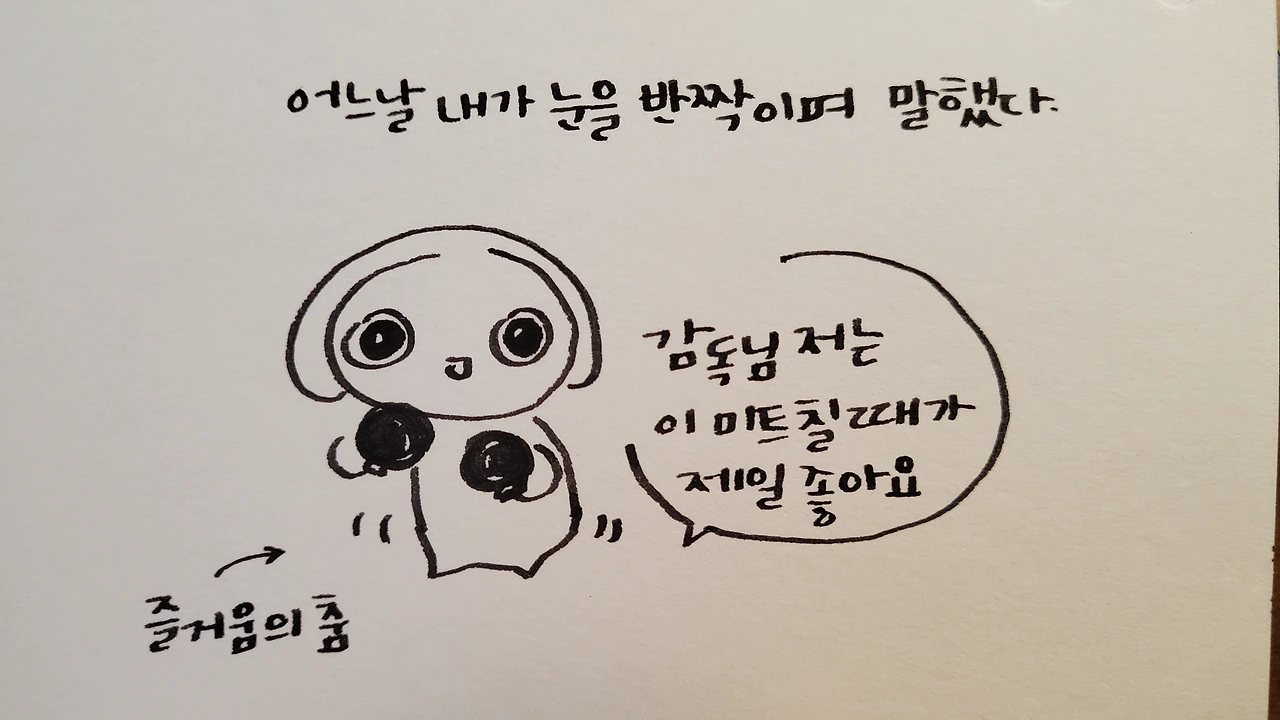 어느날 내가 눈을 반짝이며 말했다.
감독님 저는
이 미트칠때가
제일 좋아요
즐거움의 춤